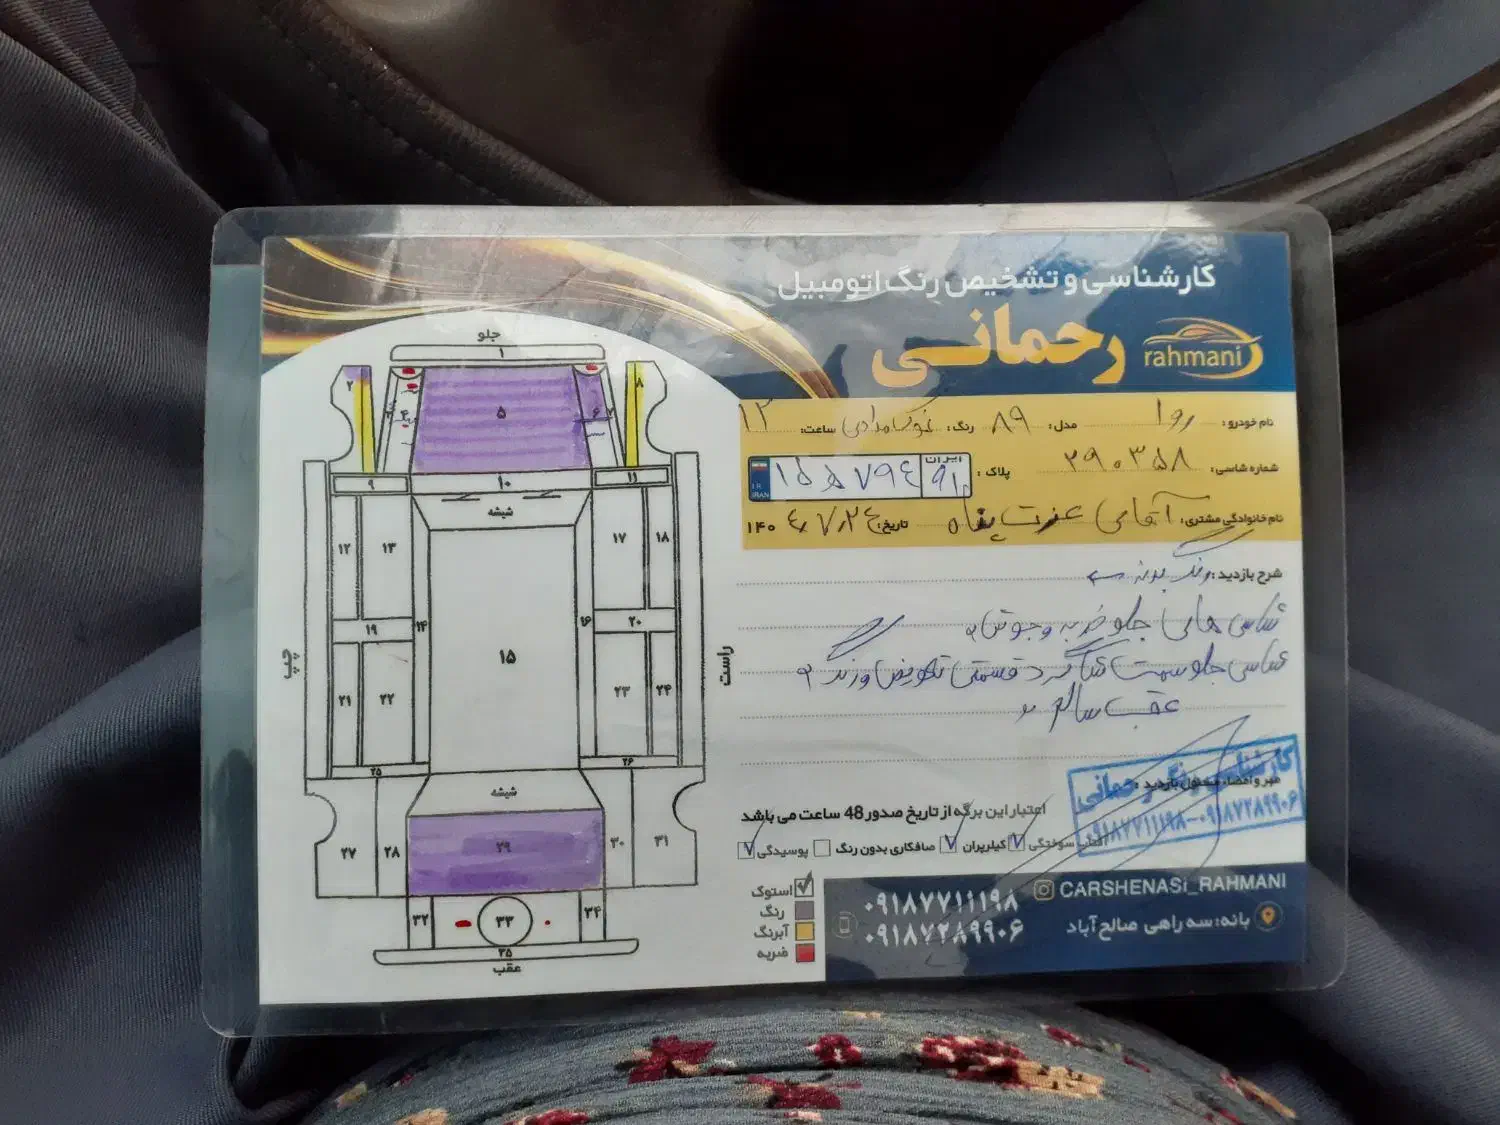 کارشناسی و تشخیص رنگ اتومبیل
رحمانی
rahmani
نام خودرو: روا مدل: ۸۹ رنگ: نوک مدادی ساعت: ۱۲
شماره شاسی: ۲۹۰۳۵۸ پلاک: ایران
I.R. IRAN
نام خانوادگی مشتری: آقای عزت پناه تاریخ: ۱۴۰۴/۷/۲۴
شرح بازدید: رنگ بدنه
شاسی های جلو ضربه و جوش
شاسی جلو سمت شاگرد قسمتی تعویض و رنگ
عقب سالم
مهر و امضاء مسئول بازدید:
کارشناسی رنگ رحمانی
۰۹۱۸۷۷۱۱۱۹۸-۰۹۱۸۷۲۸۹۹۰۶
اعتبار این برگه از تاریخ صدور 48 ساعت می باشد
آفتاب سوختگی کیلرپران صافکاری بدون رنگ پوسیدگی
استوک
رنگ
آبرنگ
ضربه
۰۹۱۸۷۷۱۱۱۹۸
۰۹۱۸۷۲۸۹۹۰۶
CARSHENASi_RAHMANI
بانه: سه راهی صالح آباد
جلو
۱
۲
۳
۴
۵
۶
۷
۸
۹
۱۰
۱۱
شیشه
۱۲
۱۳
۱۴
۱۵
۱۶
۱۷
۱۸
۱۹
۲۰
چپ
راست
۲۱
۲۲
۲۳
۲۴
۲۵
۲۶
شیشه
۲۷
۲۸
۲۹
۳۰
۳۱
۳۲
۳۳
۳۴
۳۵
عقب